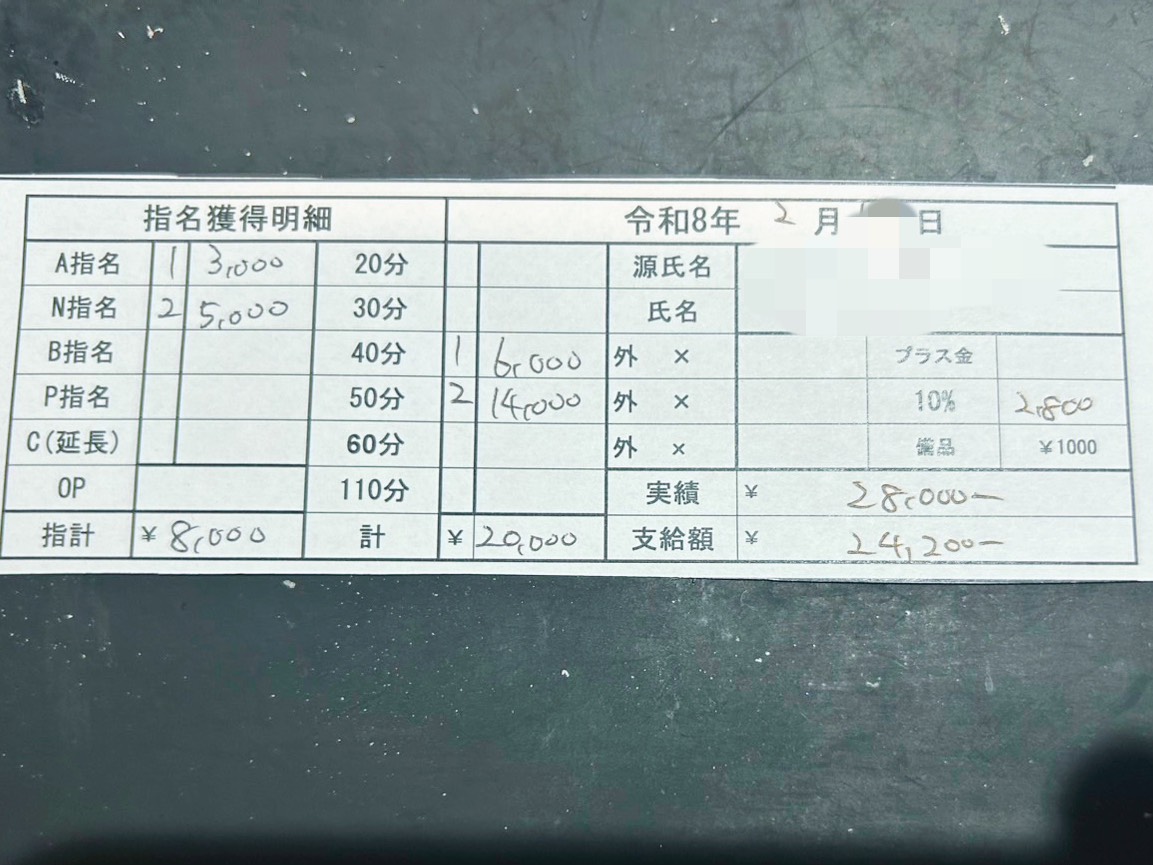 指名獲得明細 令和8年 2月 日
A指名 1 3,000 20分 源氏名
N指名 2 5,000 30分 氏名
B指名 40分 1 6,000 外 × プラス金
P指名 50分 2 14,000 外 × 10% 2,800
C(延長) 60分 外 × 備品 ¥1000
OP 110分 実績 ¥ 28,000-
指計 ¥ 8,000 計 ¥ 20,000 支給額 ¥ 24,200-